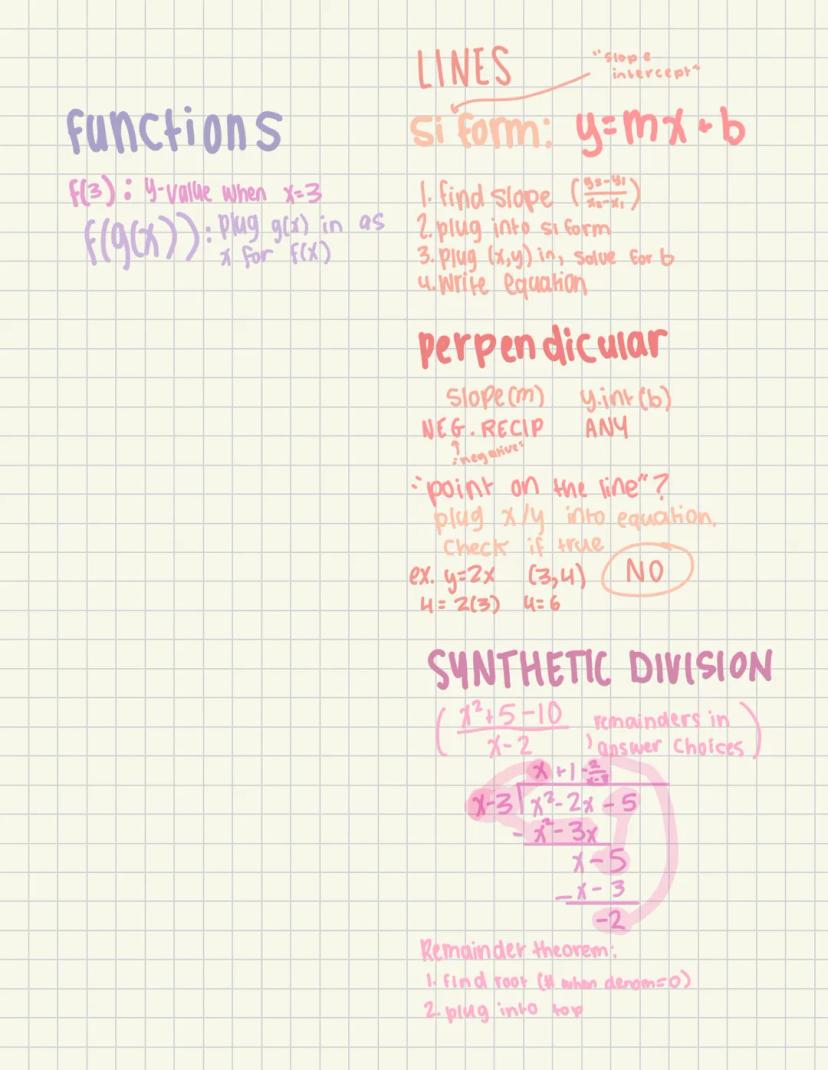 functions
f(3): y-value when x=3
f(g(x)): plug g(x) in as
x for f(x)
LINES
"slope
intercept"
si form: y=mx+b
1. find slope (y2-y1/x2-x1)
2. plug into si form
3. plug (x,y) in, solve for b
4. Write equation
perpendicular
slope(m) y.int(b)
NEG. RECIP ANY
"negative"
"point on the line"?
plug x/y into equation.
Check if true
ex. y=2x (3,4) NO
4=2(3) 4=6
SYNTHETIC DIVISION
(x²+5-10 remainders in
x-2 answer choices)
x+1
x-3 x²-2x-5
-x²-3x
x-5
-x-3
-2
Remainder theorem:
1. find root (x when denom=0)
2. plug into top